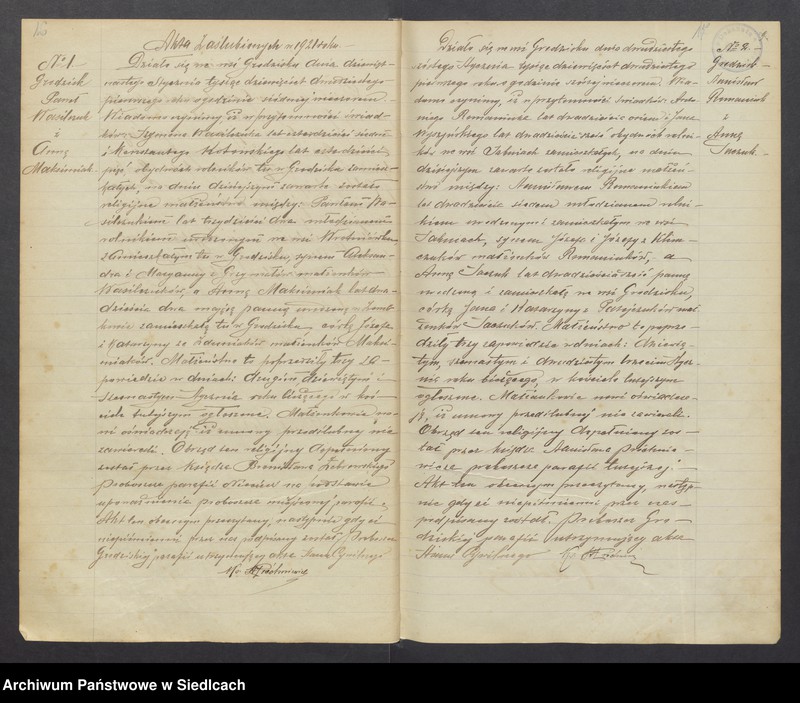 Akta Zaślubionych w 1921 roku.
№ 1.
Grodzisk
Paweł
Wasiluk
i
Anna
Maksimiak
Działo się we wsi Grodzisku dnia dziewięt-
nastego Stycznia tysiąc dziewięćset dwudziestego
pierwszego roku o godzinie siódmej wieczorem.
Wiadomo czynimy, iż w przytomności świad-
ków: Szymona Wasiluka lat czterdzieści siedm
i lat czterdzieści
pięć, obydwóch rolników tu w Grodzisku zamiesz-
kałych, na dniu dzisiejszym zawarte zostało
religijne małżeństwo między: Pawłem Wa-
silukiem lat trzydzieści dwa młodzianem
rolnikiem urodzonym we wsi
zamieszkałym tu w Grodzisku, synem Aleksan-
dra i Maryanny z małżonków
Wasiluków, a Anną Maksimiak lat dwa-
dzieścia dwa mającą panną urodzoną
zamieszkałą tu w Grodzisku, córką Józefa
i Katarzyny ze małżonków Maksi-
miaków. Małżeństwo to poprzedziły trzy Za-
powiedzie w dniach: drugim, dziewiątym i
szesnastym Stycznia roku bieżącego w koś-
ciele tutejszym ogłoszone. Małżonkowie no-
wi oświadczają, iż umowy przedślubnej nie
zawierali. Obrzęd ten religijny dopełniony
został przez księdza Bronisława
Proboszcza parafii na skutek
upoważnienia proboszcza miejscowej parafii.
Akt ten obecnym przeczytany, następnie gdy ci
niepiśmienni przez nas podpisany został. Proboszcz
Grodziskiej parafii utrzymujący akta Stanu Cywilnego
№ 2.
Grodzisk
Stanisław
Romaniuk
i
Anna
Saczuk
Działo się we wsi Grodzisku dnia dwudziestego
szóstego Stycznia tysiąc dziewięćset dwudziestego
pierwszego roku o godzinie szóstej wieczorem. Wia-
domo czynimy, iż w przytomności świadków: Anto-
niego Romaniuka lat dwadzieścia osiem i Jana
Wyszyńskiego lat dwadzieścia sześć obydwóch rolni-
ków we wsi zamieszkałych, na dniu
dzisiejszym zawarte zostało religijne małżeń-
stwo między: Stanisławem Romaniukiem
lat dwadzieścia siedem młodzianem rolni-
kiem urodzonym i zamieszkałym we wsi
synem Józefa i Józefy z Klim-
czuków małżonków Romaniuków, a
Anną Saczuk lat dwadzieścia sześć panną
urodzoną i zamieszkałą we wsi Grodzisku,
córką Jana i Katarzyny z mał-
żonków Saczuków. Małżeństwo to poprze-
dziły trzy zapowiedzie w dniach: dziewią-
tym, szesnastym i dwudziestym trzecim Stycz-
nia roku bieżącego, w kościele tutejszym
ogłoszone. Małżonkowie nowi oświadcza-
ją, iż umowy przedślubnej nie zawierali.
Obrzęd ten religijny dopełniony zos-
tał przez księdza Stanisława
proboszcza parafii tutejszej.
Akt ten obecnym przeczytany, następ-
nie gdy ci niepiśmienni przez nas
podpisany został. Proboszcz Gro-
dziskiej parafii utrzymujący akta
Stanu Cywilnego
Archiwum Państwowe w Siedlcach